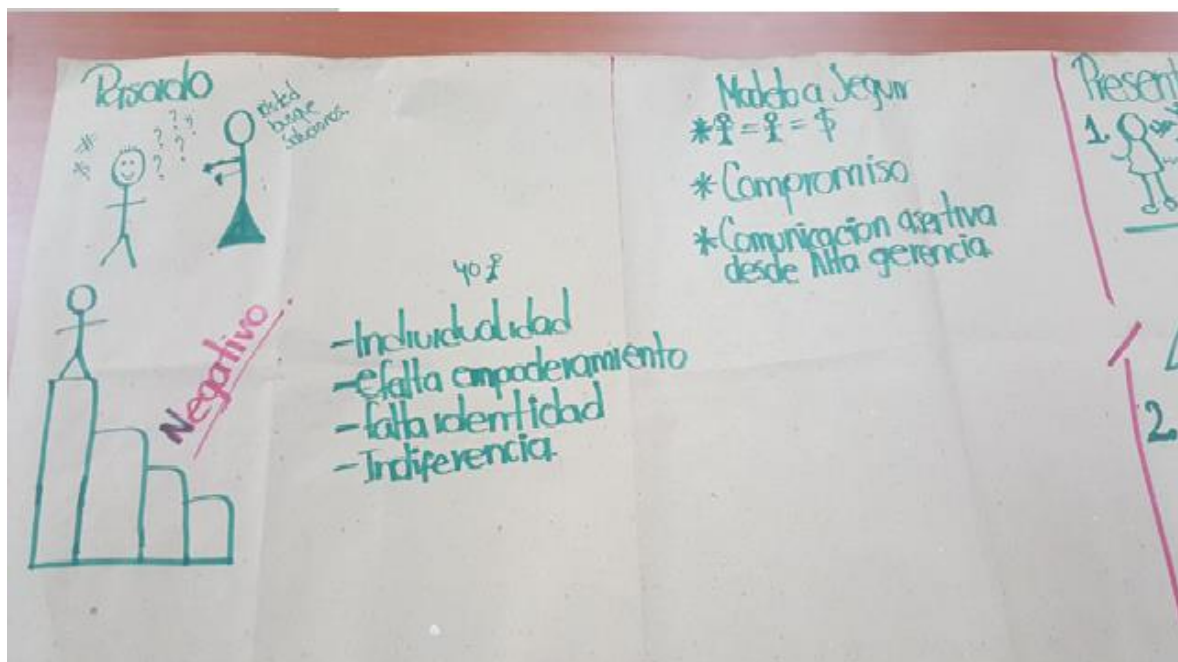 usted
busque
40
-Individualidad
-efalta empoderamiento
-falta identidad
-Indiferencia.
Negativo
Modelo a Seguir
* = = $
* Compromiso
* Comunicacion asertiva
desde Alta gerencia.
Present
1.
2.